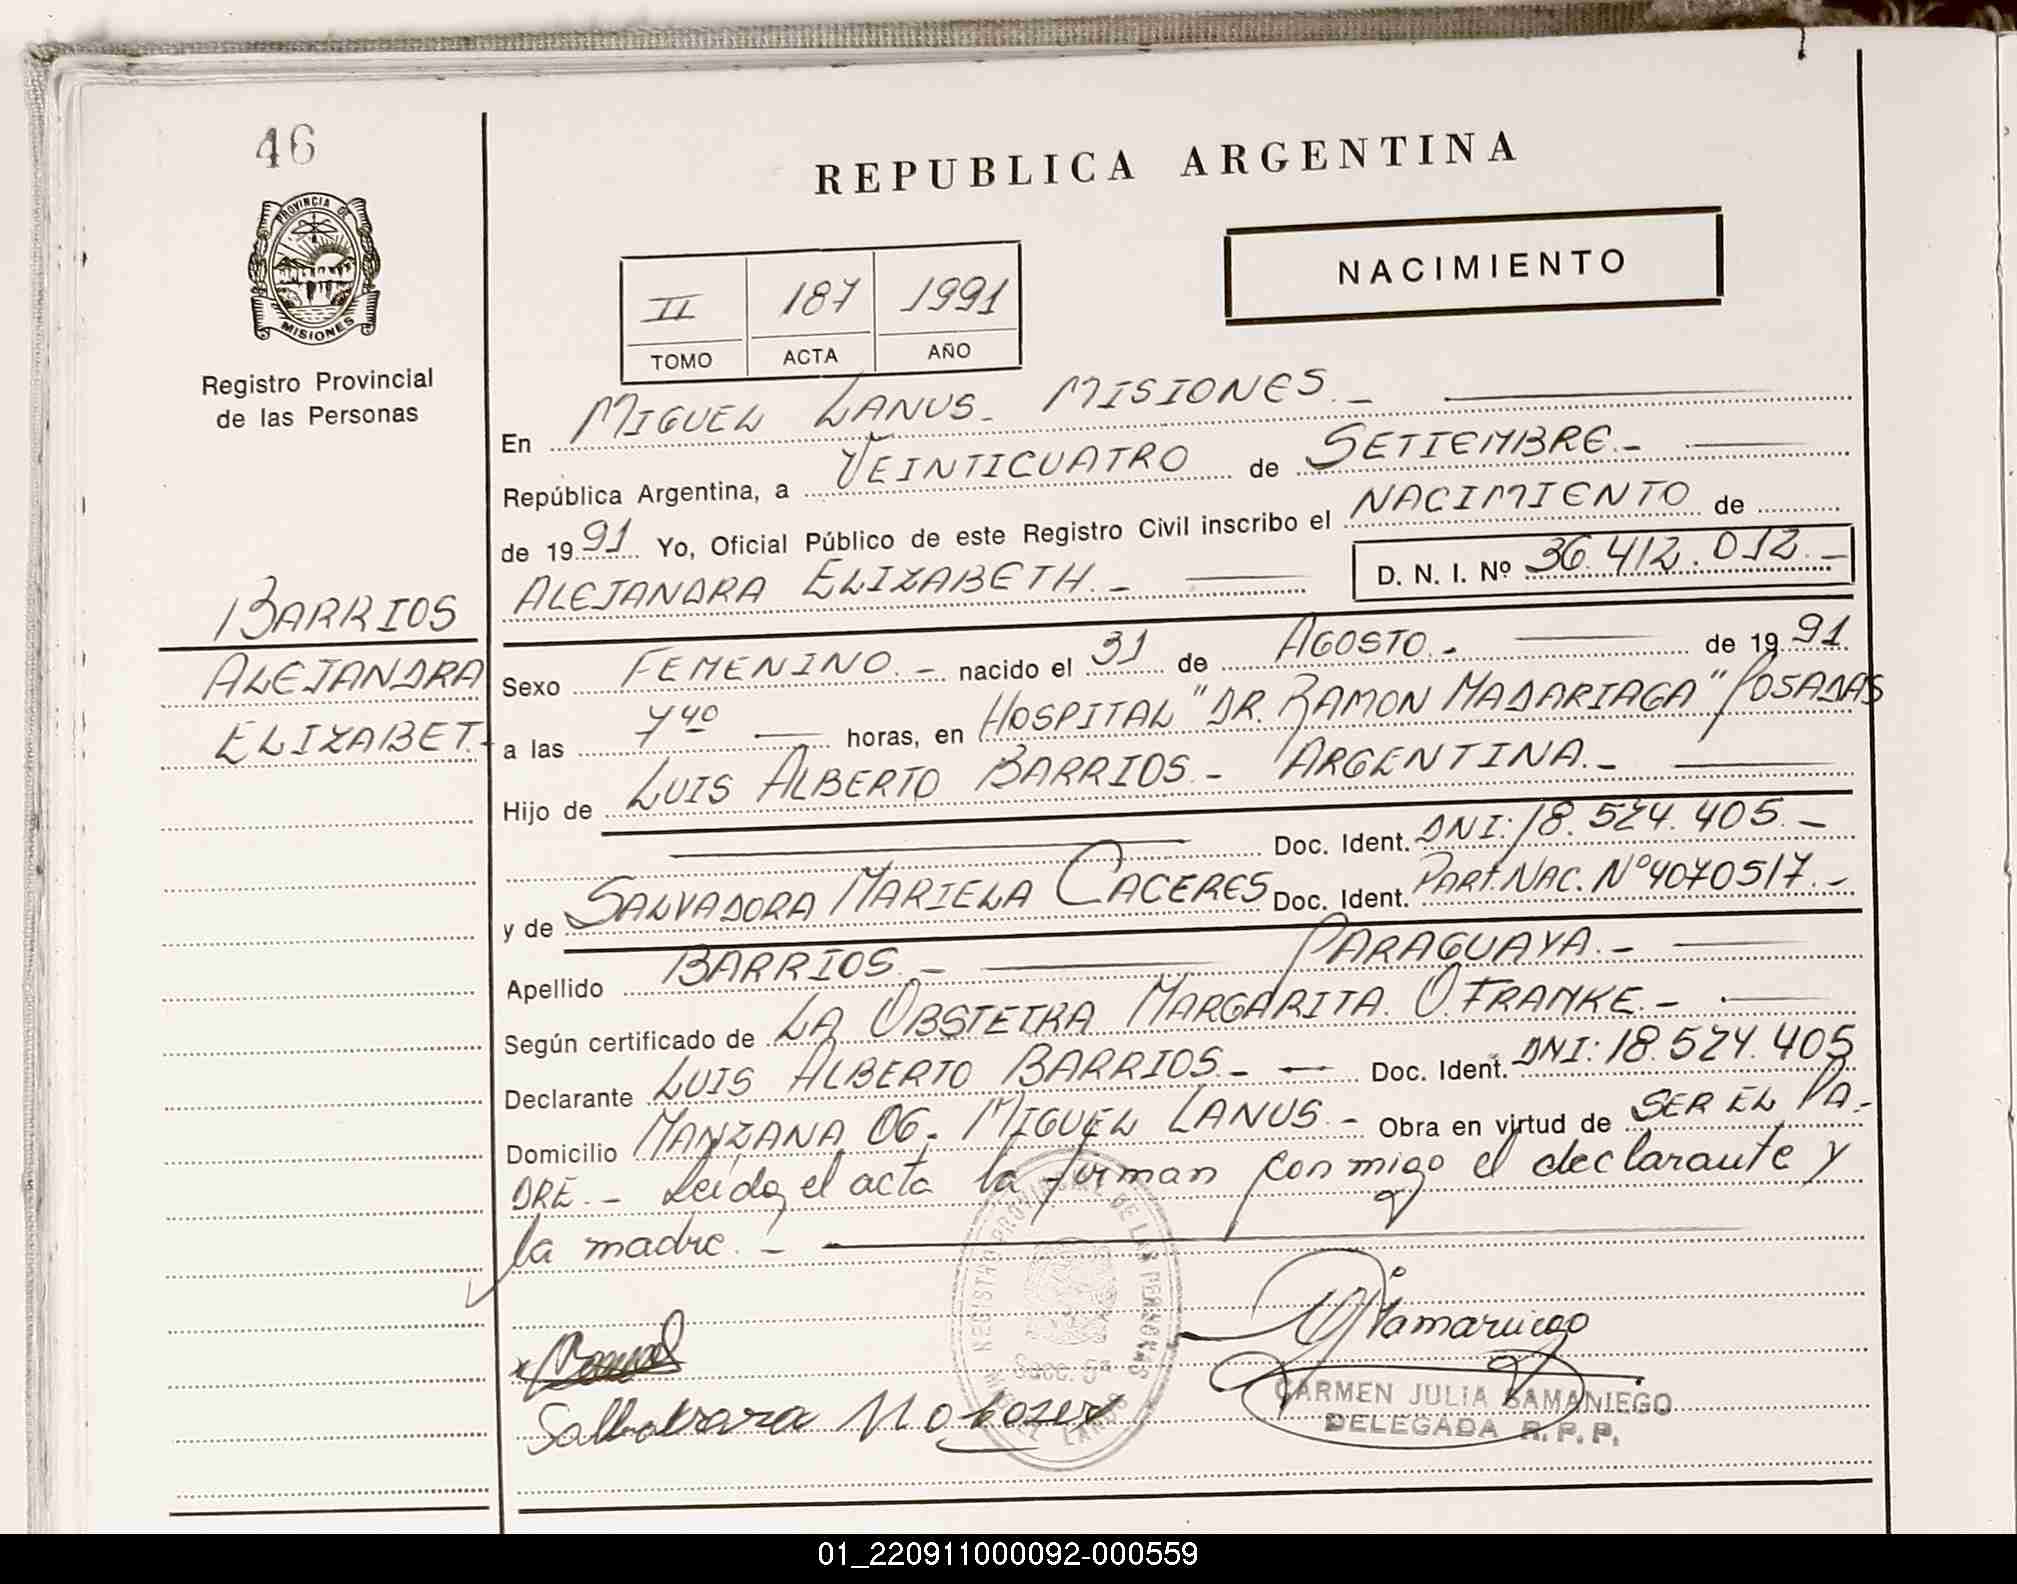 46
PROVINCIA DE
MISIONES
Registro Provincial
de las Personas
BARRIOS
ALEJANDRA
ELIZABET.-
REPUBLICA ARGENTINA
NACIMIENTO
II 187 1991
TOMO ACTA AÑO
En MIGUEL LANUS - MISIONES. -
República Argentina, a VEINTICUATRO de SETIEMBRE. -
de 19 91 Yo, Oficial Público de este Registro Civil inscribo el NACIMIENTO de
ALEJANDRA ELIZABETH. - D. N. I. Nº 36.412.012. -
Sexo FEMENINO. - nacido el 31 de AGOSTO. - de 19 91
a las 7 40 horas, en HOSPITAL "DR. RAMON MADARIAGA" POSADAS
Hijo de LUIS ALBERTO BARRIOS - ARGENTINA. -
Doc. Ident. DNI: 18.524.405. -
y de SALVADORA MARIELA CACERES Doc. Ident. PART. NAC. Nº 4070517. -
Apellido BARRIOS. - PARAGUAYA. -
Según certificado de LA OBSTETRA MARGARITA O. FRANKE. -
Declarante LUIS ALBERTO BARRIOS. - Doc. Ident. DNI: 18.524.405
Domicilio MANZANA 06. MIGUEL LANUS - Obra en virtud de SER EL PA-
DRE. - Leída el acta la firman conmigo el declarante y
la madre. -
REGISTRO PROVINCIAL DE LAS PERSONAS
Secc. 5ª
MIGUEL LANUS
CARMEN JULIA SAMANIEGO
DELEGADA R. P. P.
01_220911000092-000559